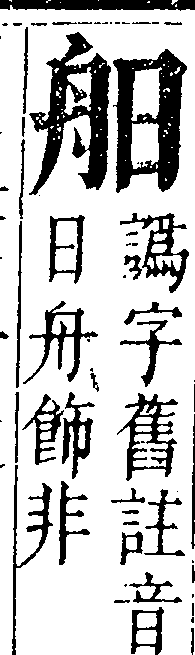 譌字舊註音
日舟飾非